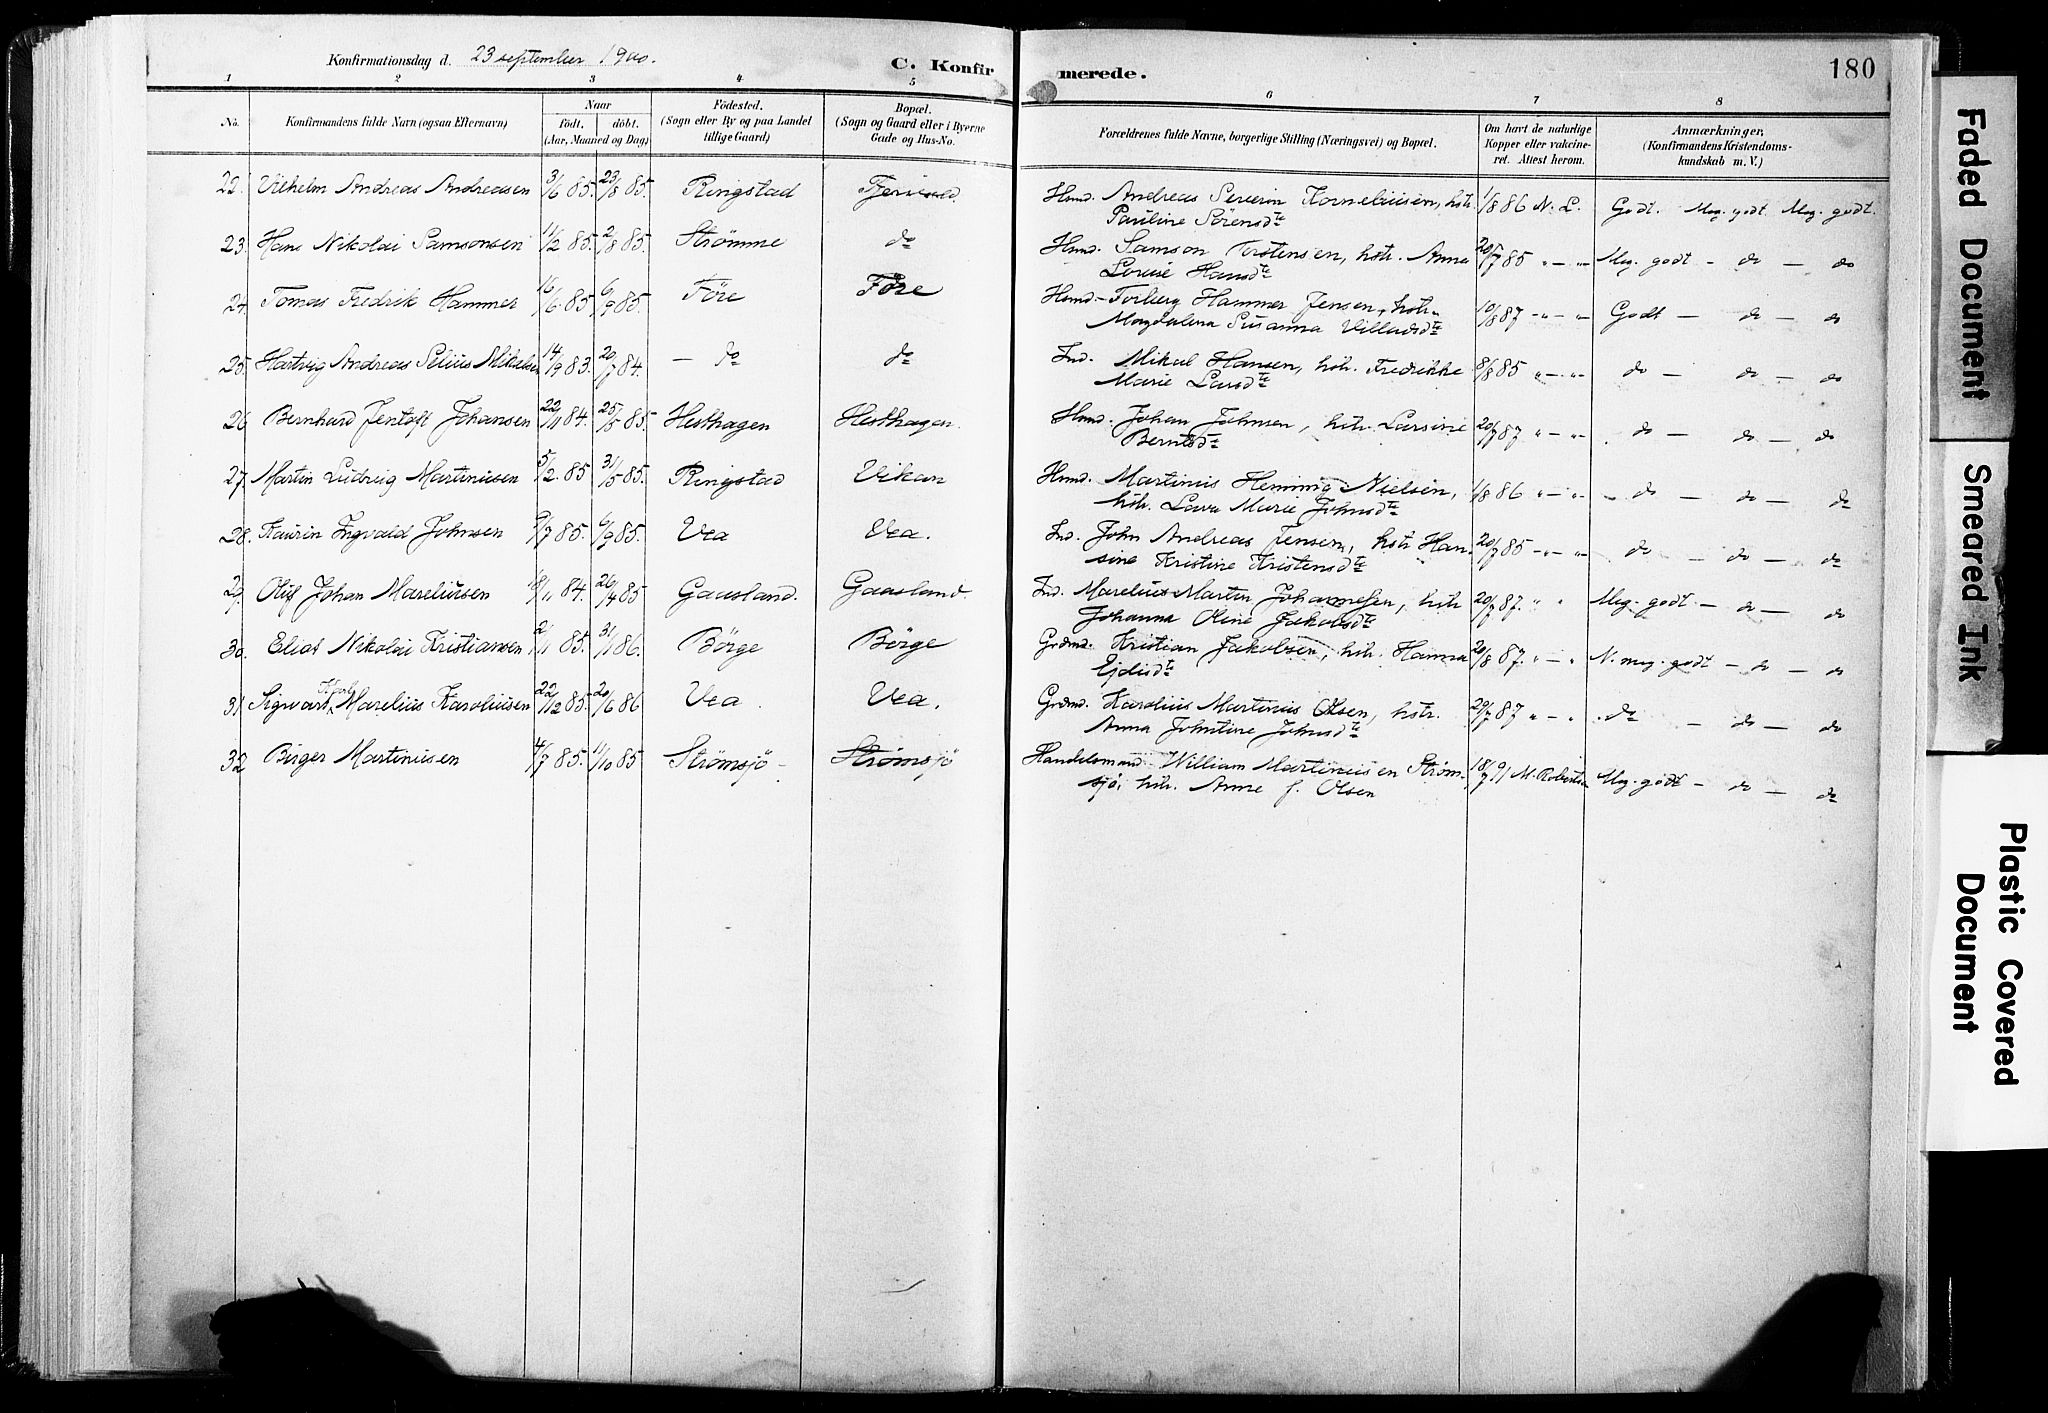 Konfirmationsdag d. 23 september 1900.
C. Konfirmerede.
180
1 2 3 4 5 6 7 8
No. Konfirmandens fulde Navn (ogsaa Efternavn) Naar födt, döbt. (Aar, Maaned og Dag) Födested. (Sogn eller By og paa Landet tillige Gaard) Bopæl. (Sogn og Gaard eller i Byerne Gade og Hus-No. Forældrenes fulde Navne, borgerlige Stilling (Næringsvei) og Bopæl. Om havt de naturlige Kopper eller vakcineret. Attest herom. Anmærkninger, (Konfirmandens Kristendomskundskab m. V.)
22. Vilhelm Andreas Andreasen 3/6 85. 23/8 85. Ringstad Hmd. Andreas Severin Korneliusen, hstr. 1/8 86 N. L. Godt. Meg. godt. Meg. godt.
Pauline Sörensdtr
23. Hans Nikolai Samsonsen 11/2 85. 2/8 85. Strømme do Hmd. Samson Torstensen, hstr. Anna 20/7 85 " — " Meg. godt — do — do
Lovise Hansdtr
24. Tomas Fredrik Hammer 16/6 85. 6/9 85. Före Före Hmd. Torberg Hammer Jensen, hstr. 10/8 87 " — " Godt — do — do
Magdalena Susanna Villadsdtr
25. Hartvig Andreas Selius Mikalsen 14/9 83. 20/7 84. — do do Ind. Mikal Hansen, hstr. Fredrikke 8/8 85 " — " do — do — do
Marie Larsdtr
26 Bernhard Jentoft Johansen 22/11 84. 25/5 85. Hesthagen Hesthagen. Hmd. Johan Johnsen, hstr. Larsine 20/7 87 " — " do — do — do
Berntsdtr
27. Martin Ludvig Martinusen 5/2 85 31/5 85. Ringstad Vikan Hmd. Martinus Henning Nielsen, 1/8 86 " — " do — do — do
hstr. Lava Marie Johnsdtr
28. Kaurin Ingvald Johnsen 9/7 85. 6/9 85. Vea Vea. Ind. John Andreas Jensen, hstr Han- 20/7 85 " — " do — do — do
sine Kristine Kristensdtr
29. Oluf Johan Mareliusen 18/11 84. 26/4 85 Gaasland. Gaasland. Ind. Marelius Martin Johannesen, hstr 20/7 87. " " Meg. godt — do — do
Johanna Oline Jakobsdtr
30. Elias Nikolai Kristiansen 2/11 85. 31/1 86. Börge Börge Grdmd. Kristian Jakobsen, hstr. Hanna 20/8 87. " — " N. meg. godt — do — do
31 Sigvart Marelius Karoliusen 22/12 85. 20/6 86 Vea. Vea. Grdmd. Karolius Martinus Olsen, hstr. 29/7 87 " — " do — do — do
Anna Johntine Johnsdtr
32 Birger Martinusen 4/7 85. 11/10 85 Strömsjö — Strömsjö Handelsmand William Martinusen Ström- 18/7 91 M. Robertsen Meg. godt — do — do
sjö, hstr. Anne f. Olsen
Faded Document
Smeared Ink
Plastic Covered Document